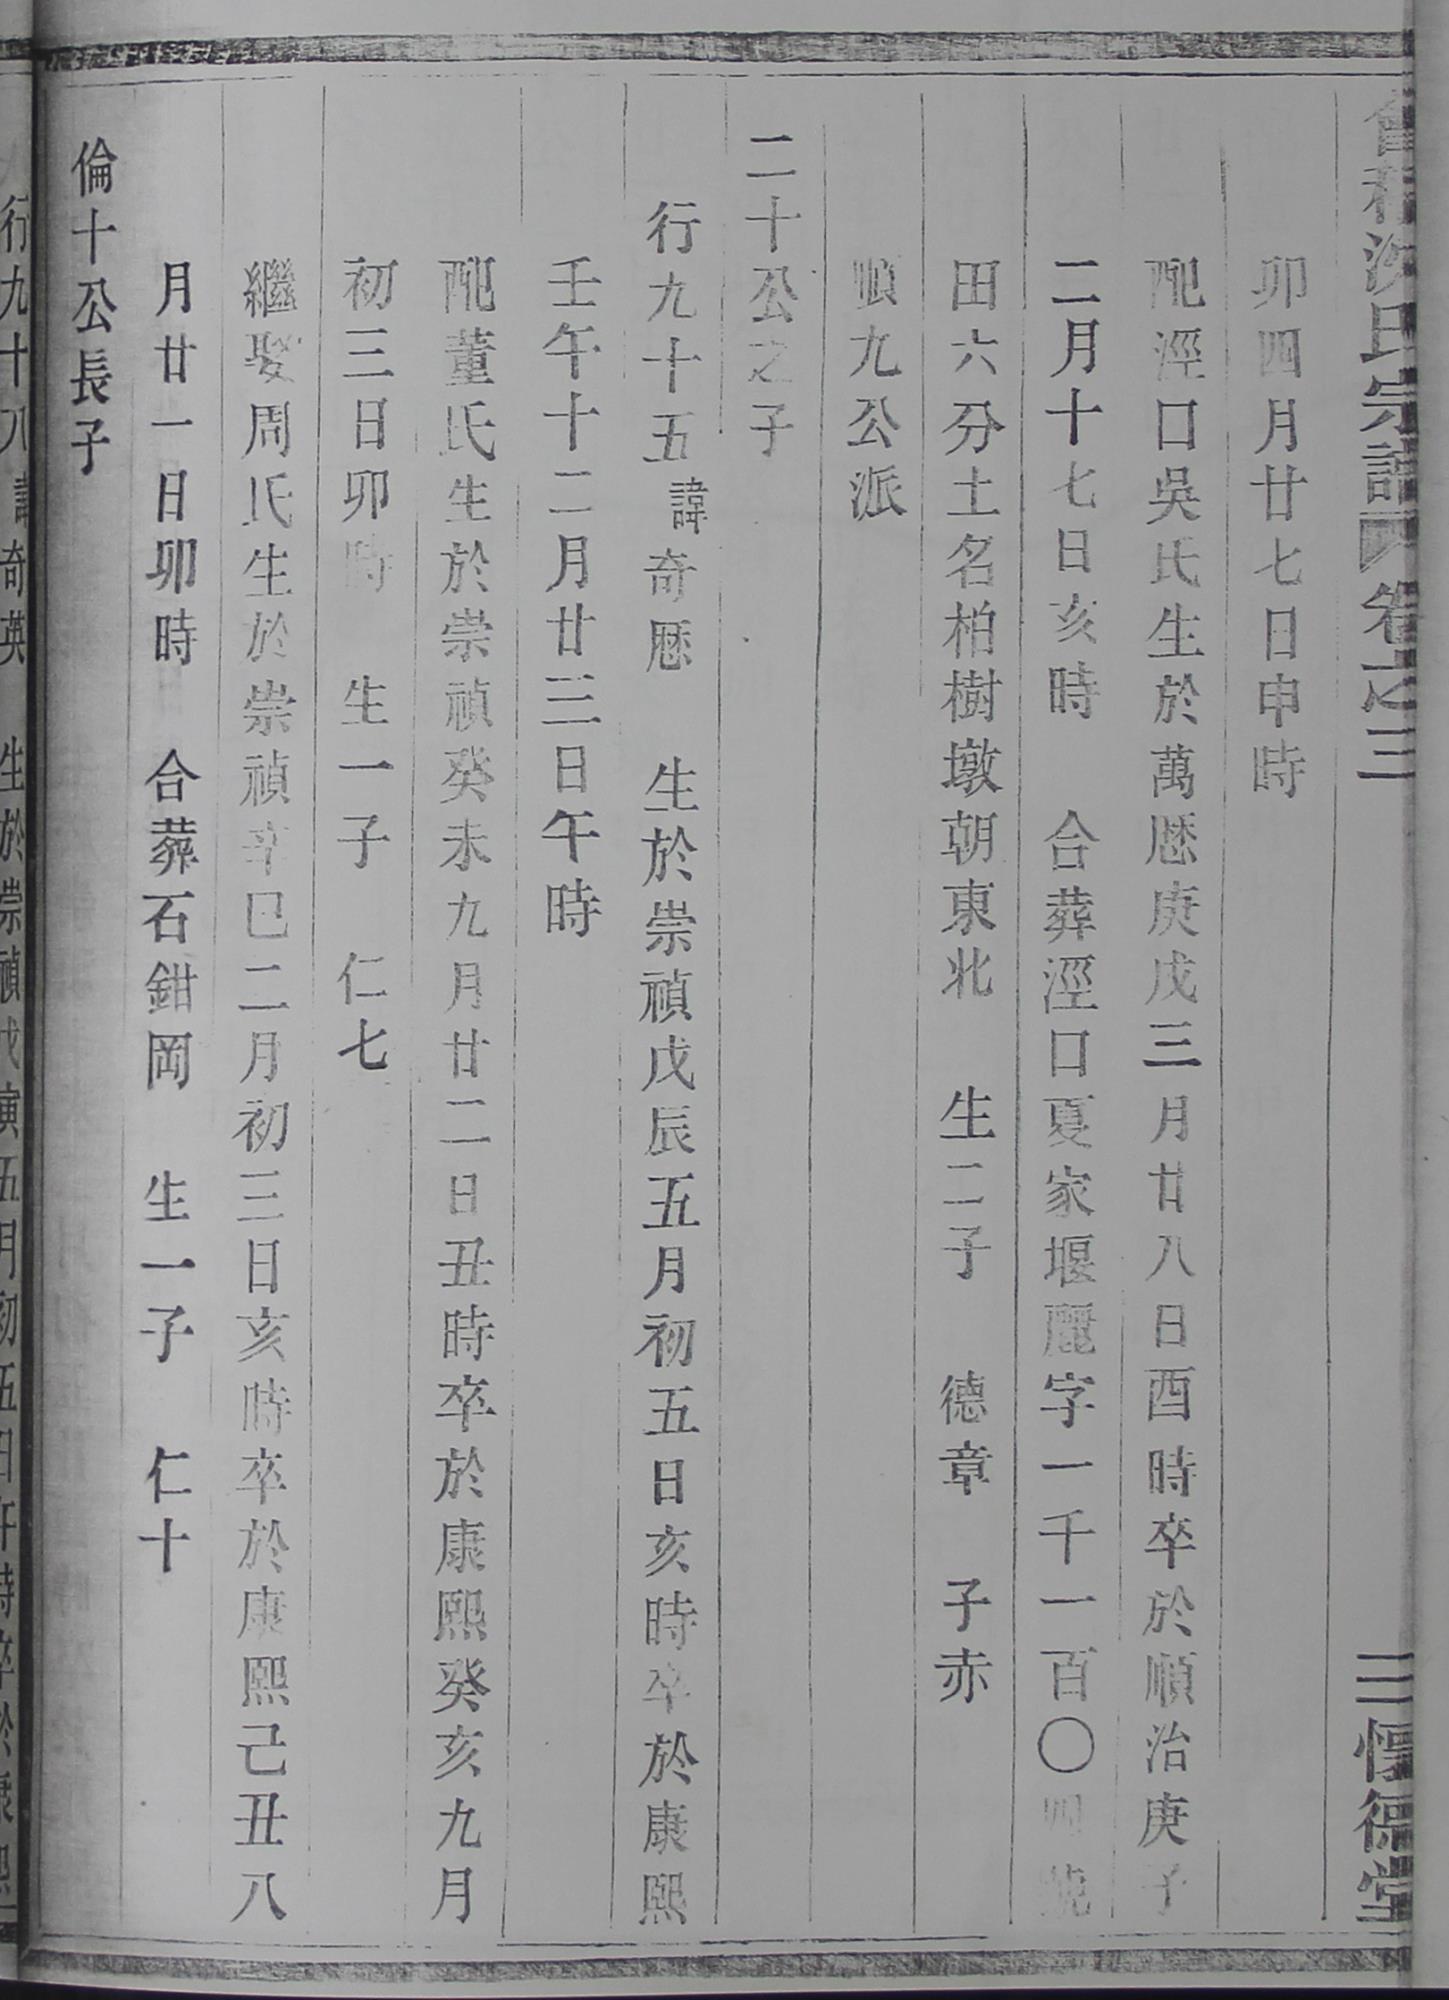 會稽沈氏宗譜 卷之三 三 惇德堂
卯四月廿七日申時
配涇口吳氏生於萬厯庚戌三月廿八日酉時卒於順治庚子
二月十七日亥時 合葬涇口夏家堰麗字一千一百〇四號
田六分土名柏樹墩朝東北 生二子 德章 子赤
順九公派
二十公之子
行九十五諱奇厯 生於崇禎戊辰五月初五日亥時卒於康熙
壬午十二月廿三日午時
配董氏生於崇禎癸未九月廿二日丑時卒於康熙癸亥九月
初三日卯時 生一子 仁七
繼娶周氏生於崇禎辛巳二月初三日亥時卒於康熙己丑八
月廿一日卯時 合葬石鉗岡 生一子 仁十
倫十公長子
行九十八諱奇英 生於崇禎戊寅五月初五日午時卒於康熙